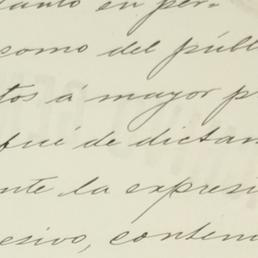 tanto en per-
como del públ
tos á mayor p
fué de dictam
nte la expresi
esivo, conten